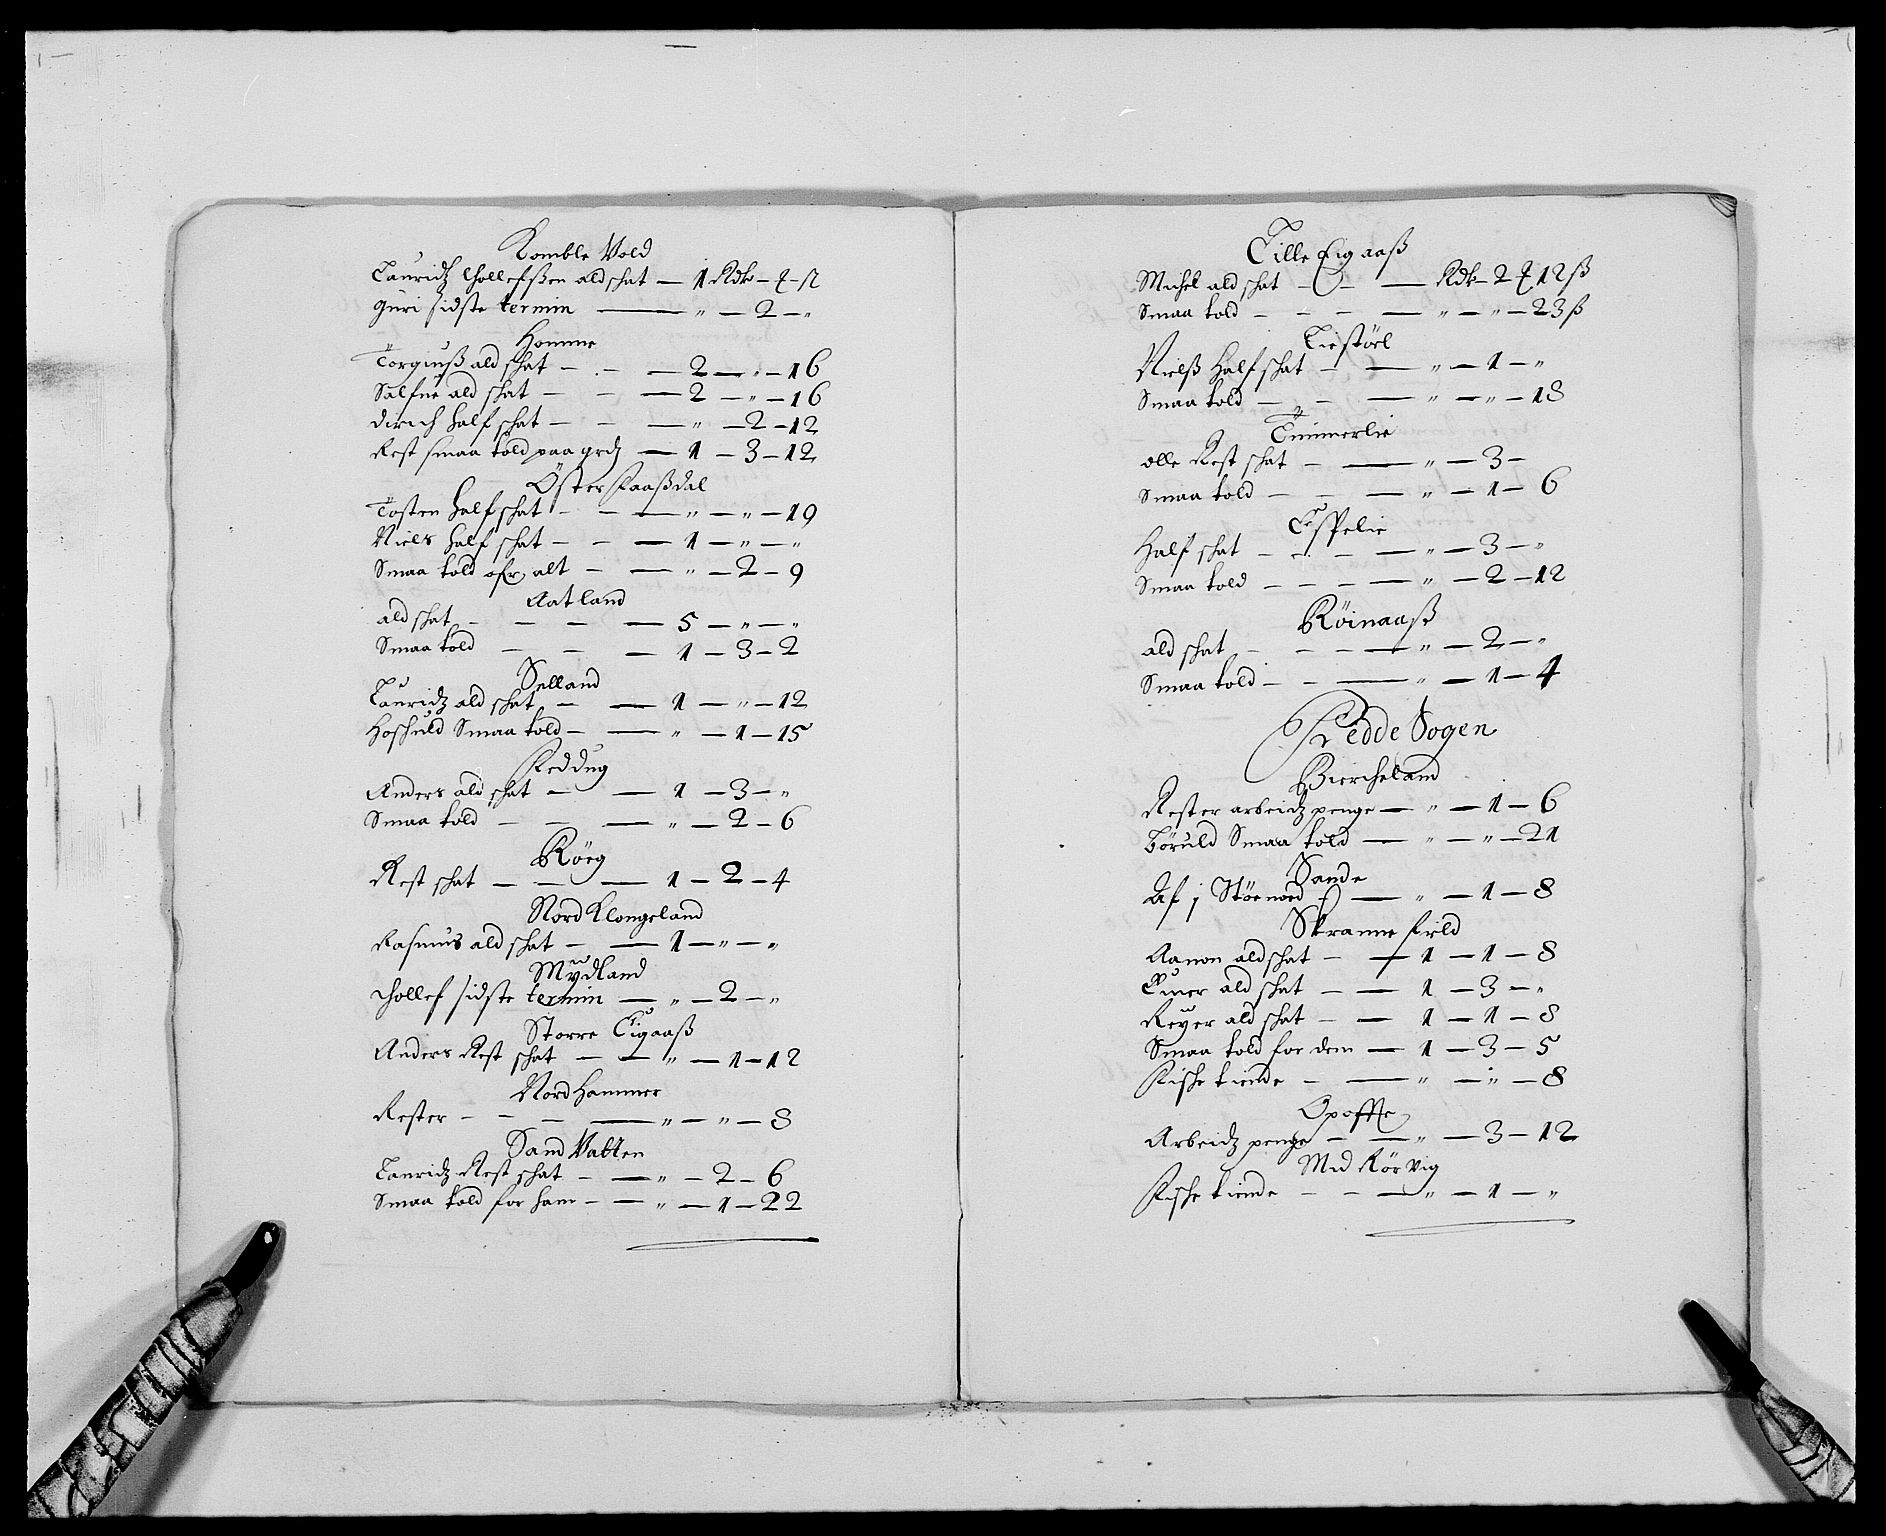 Komble Vold
Lauridtz thollefßen ald schat — 1 Rdr – –
Guri sidste termin — „ — 2 – „
Homme
Torgiuß ald schat – – — 2 — „ – 16
Salfue ald schat – – — 2 – „ – 16
dirich half schat – – — „ – 2 – 12
Rest smaa told paa grdz — 1 – 3 – 12
Öster Faaßdal
Tosten half schat – – — „ – „ – 19
Niels half schat – – — 1 – „ – „
Smaa told ofr alt – — „ – 2 – 9
Aatland
ald schat – – – — 5 – „ – „
Smaa told – – — 1 – 3 – 2
Selland
Lauridtz ald schat – — 1 – „ – 12
Hoschuld Smaa told – — „ – 1 – 15
Feddug
Anders ald schat – — 1 – 3 – „
Smaa told – – — „ – 2 – 6
Röeg
Rest schat – – — 1 – 2 – 4
Nord Klongeland
Rasmus ald schat – — 1 – „ – „
Mydland
thollef sidste termin — „ – 2 – „
Storre Eigaaß
Anders Rest schat – — „ – 1 – 12
Nord Hammer
Rester – – – — „ – „ – 8
Sand Vatten
Lauridtz Rest schat – — „ – 2 – 6
Smaa told for ham – — „ – 1 – 22
Lille Eigaaß
Michel ald schat – – — Rdr – 2 12 ß
Smaa told – – – — „ – „ – 23 ß
Liestöel
Nielß Half schat – — „ – 1 – „
Smaa told – – — „ – „ – 18
Tümmerlie
olle Rest schat – — „ – 3 –
Smaa told – – — „ – 1 – 6
Espelie
Half schat – – – — „ – 3 – „
Smaa told – – – — „ – 2 – 12
Röinaaß
ald schat – – – — „ – 2 – „
Smaa told – – — „ – 1 – 4
Fedde Sogen
Biercheland
Rester arbeidtz penge — „ – 1 – 6
Töruld Smaa told — „ – „ – 21
Sande
Af j — „ – 1 – 8
Skranne field
Aanon ald schat – — 1 – 1 – 8
Einer ald schat – — 1 – 3 – „
Reyer ald schat – — 1 – 1 – 8
Smaa told for dem — 1 – 3 – 5
Fische tiende – — „ – „ – 8
Opofte
Arbeidtz penge – — „ – 3 – 12
Med Rörvig
Fische tiende – – — „ – 1 – „